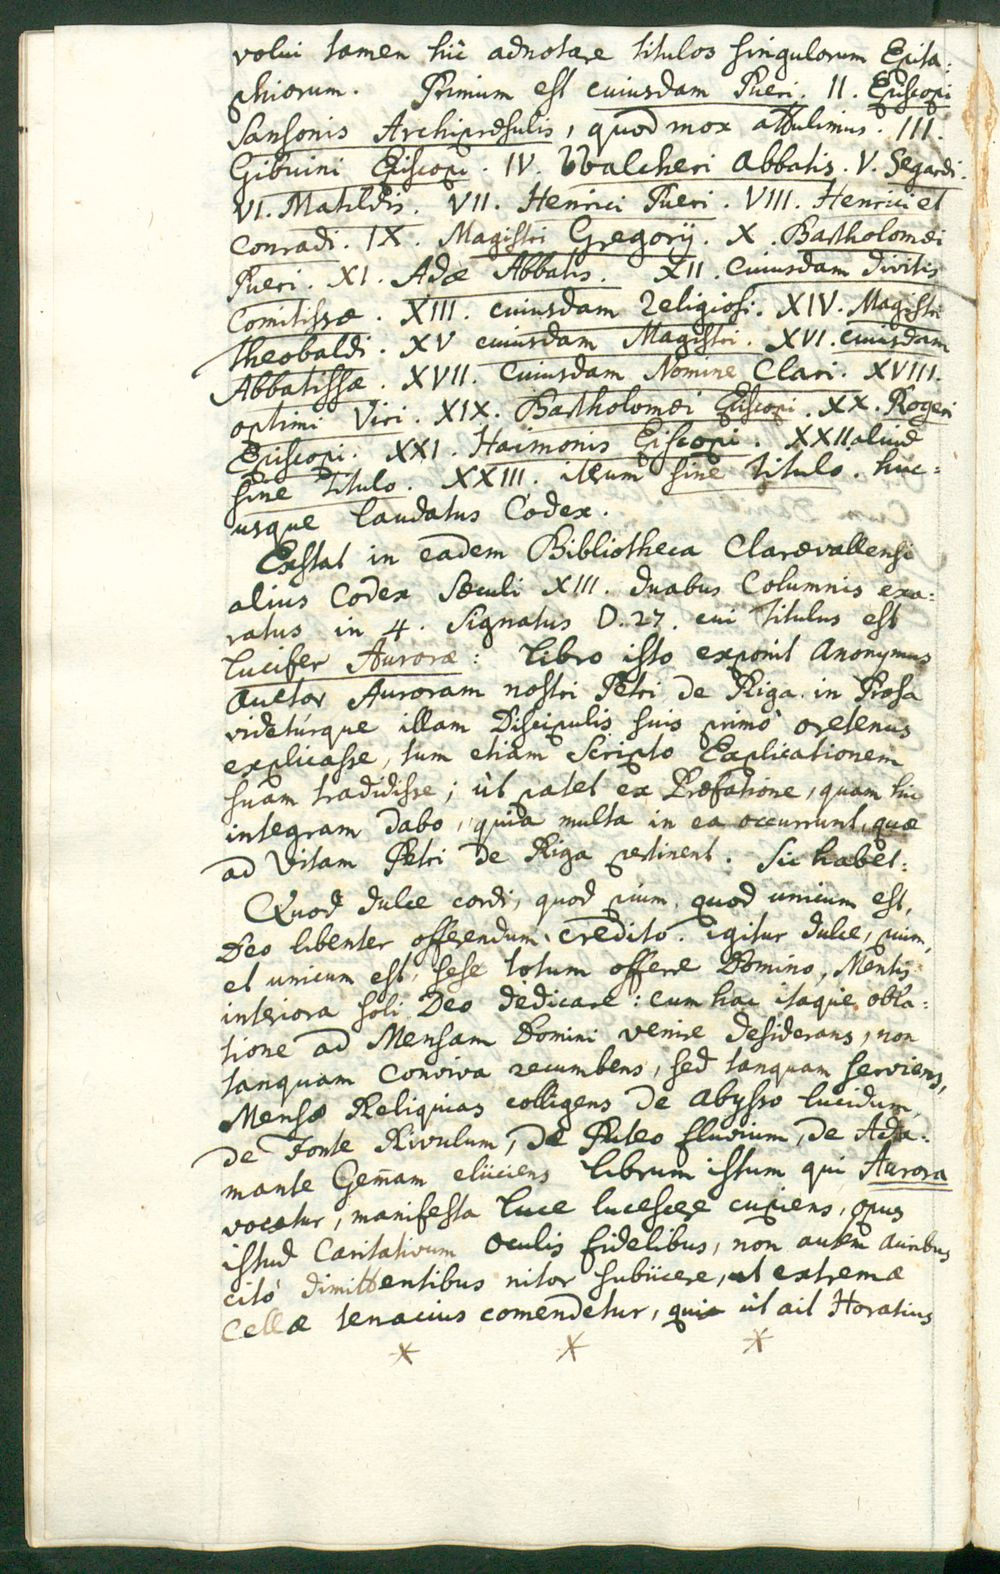 volui tamen hîc adnotare titulos singulorum Epita:
phiorum. Primum est cuiusdam Pueri. II. Episcopi
Sansonis Archipræsulis, quod mox attulimus. III.
Gibuini Episcopi. IV. Walcheri Abbatis. V. Segardi.
VI. Matildis. VII. Henrici Pueri. VIII. Henrici et
Conradi. IX. Magistri Gregorij. X. Bartholomæi
Pueri. XI. Adæ Abbatis. XII. Cuiusdam divitis
Comitissæ. XIII. cuiusdam religiosi. XIV. Magistri
Theobaldi. XV cuiusdam Magistri. XVI. cuiusdam
Abbatissæ. XVII. Cuiusdam Nomine Clari. XVIII.
optimi Viri. XIX. Bartholomæi Episcopi. XX. Rogeri
Episcopi. XXI. Haimonis Episcopi. XXII aliud
sine titulo. XXIII. iterum sine titulo. huc:
usque laudatus Codex.
Exstat in eadem Bibliotheca Clarævallensi
alius Codex Sæculi XIII. duabus Columnis exa:
ratus in 4. Signatus D. 27. cui titulus est
Lucifer Auroræ: Libro isto exponit Anonymus
Auctor Auroram nostri Petri de Riga in Prosa
videtúrque illam Discipulis suis primò oretenus
explicasse, tum etiam Scripto Explicationem
suam tradidisse; ùt patet ex Præfatione, quam hîc
integram dabo, quia multa in ea occurrunt, quæ
ad Vitam Petri de Riga pertinent. Sic habet:
Quod dulce cordi, quod pium, quod unicum est,
Deo libenter offerendum credito. igitur dulce, pium,
et unicum est, sese totum offerre Domino, Mentis
interiora soli Deo dedicare: cum hac itaque obla:
tione ad Mensam Domini venire desiderans, non
tanquam Conviva recumbens, sed tanquam serviens,
Mensæ Reliquias colligens de Abysso lucidum,
de Fonte Rivulum, de Puteo fluvium, de Ada:
mante Gem̄am eliciens Librum istum qui Aurora
vocatur, manifesta luce lucescere cupiens, opus
istud Caritativum oculis fidelibus, non autem auribus
citò dimittentibus nitor subiicere, ut extremæ
Cellæ tenacius comendetur, quia ùt ait Horatius
* * *